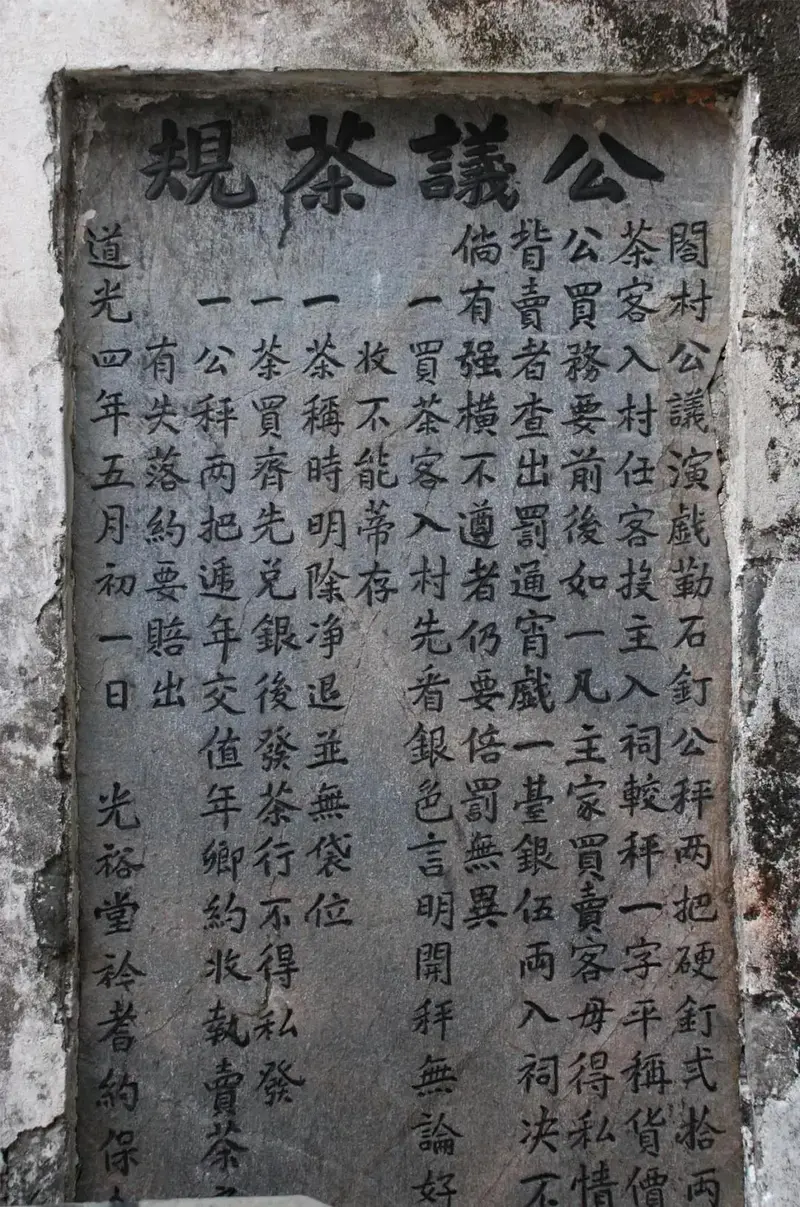 公議茶規
閤村公議演戲勒石釘公秤兩把硬釘弍拾兩
茶客入村任客投主入祠較秤一字平稱貨價
公買務要前後如一凡主家買賣客毋得私情
背賣者查出罰通宵戲一臺銀伍両入祠决不
倘有强橫不遵者仍要倍罰無異
一買茶客入村先看銀色言明開秤無論好
收不能蒂存
一茶稱時明除净退並無袋位
一茶買齊先兑銀後發茶行不得私發
一公秤两把遞年交值年鄉約收執賣茶
有失落約要賠出
道光四年五月初一日 光裕堂衿耆約保